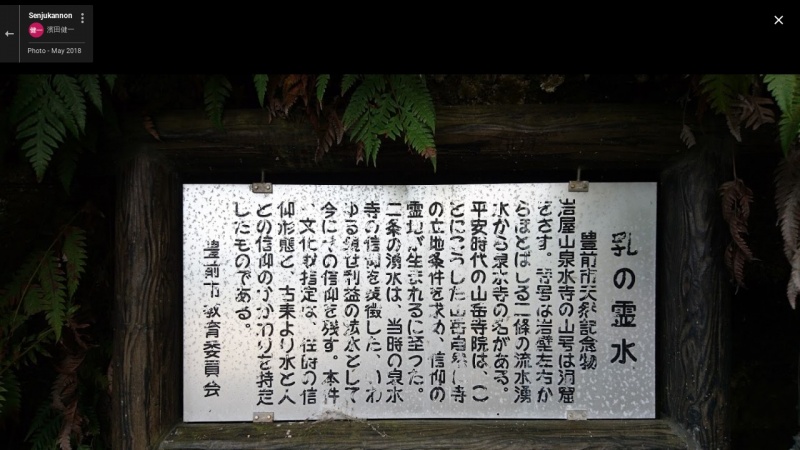 Senjukannon
健一 濱田健一
Photo - May 2018
乳の霊水
豊前市天然記念物
岩屋山泉水寺の山号は洞窟
をさす。寺号は岩壁左方か
らほとばしる二條の流水湧
水から泉水寺の名がある。
平安時代の山岳寺院は、こ
とにこうした山岳自然に寺
の立地条件を求め、信仰の
霊地が生まれるに至った。
二条の湧水は、当時の泉水
寺の信仰を象徴した、いわ
ゆる現世利益の霊水として
今にその信仰を残す。本件
、文化財指定は、往時の信
仰形態と、古来より水と人
との信仰のかかわりを特定
したものである。
豊前市教育委員会